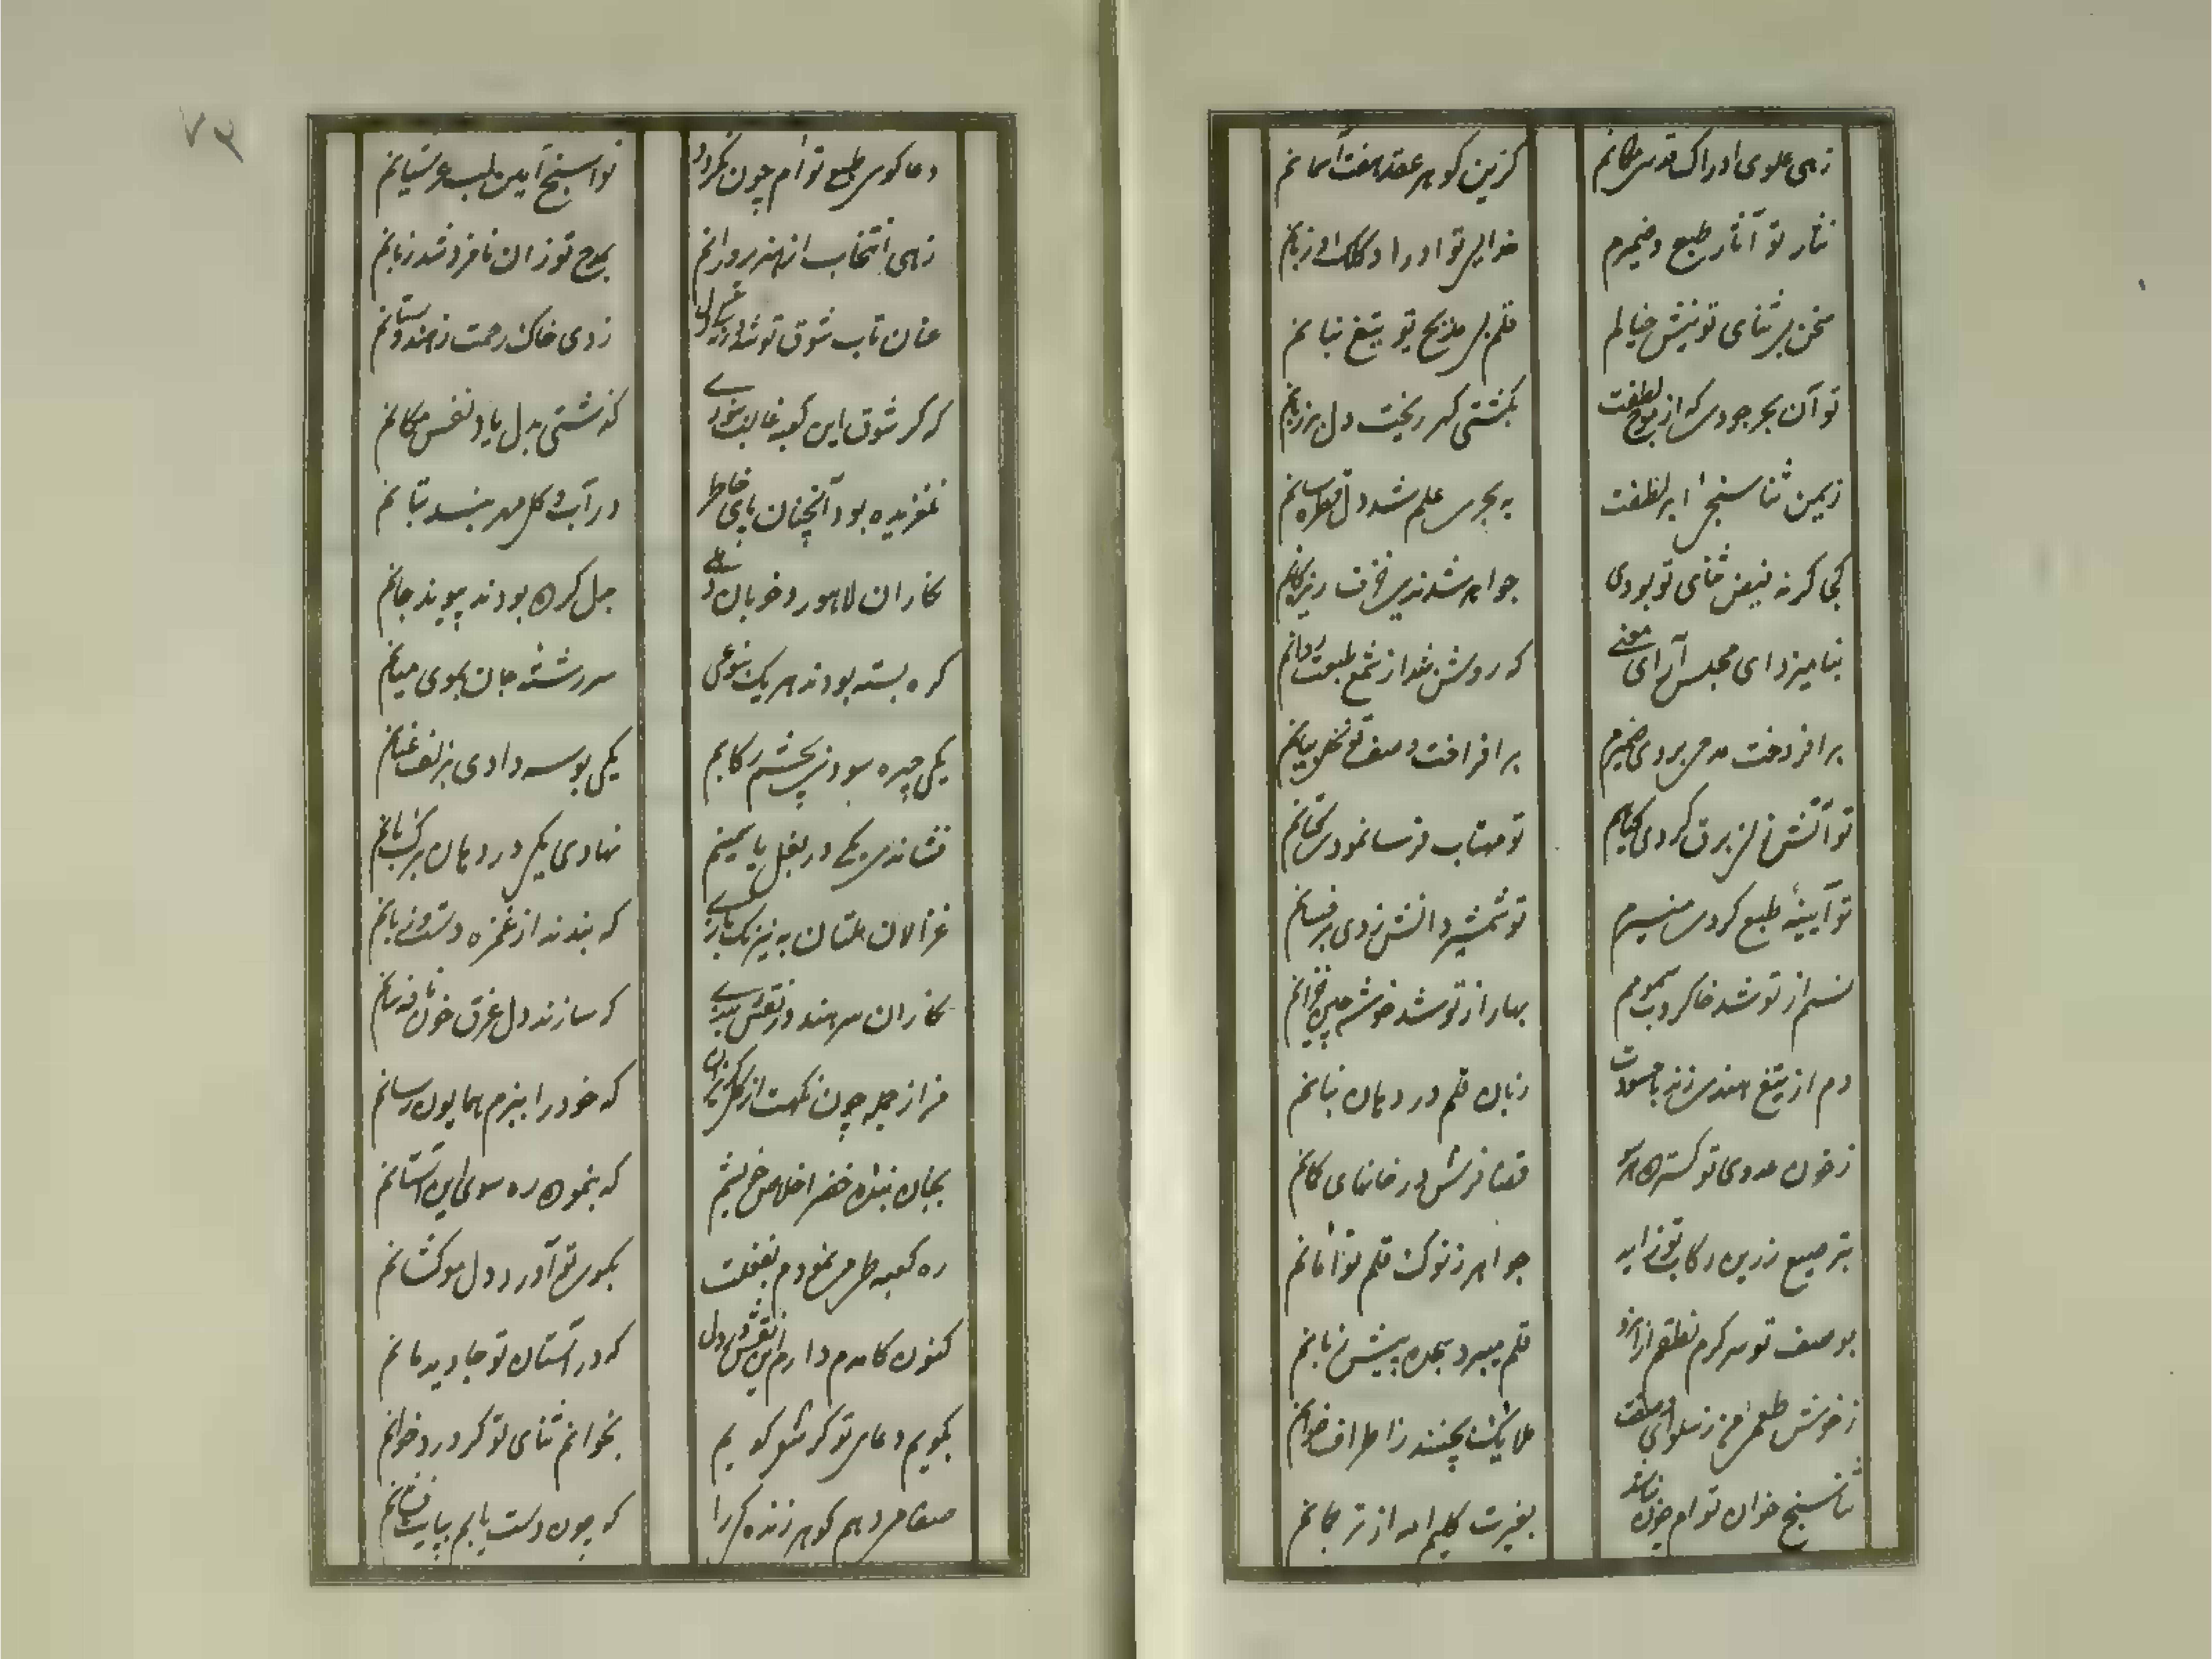 زهی علوی ادراک قدسی مکانم گزین گوهر عقد هفت آسمانم
نثار تو آثار طبع و ضمیرم
سخن بر ثنای تو نیش خیالم قلم بر مدیح تو تیغ نیانم
تو آن بحر جودی که از موج لطفت بکشتی گهر ریخت دل بر زبانم
زیمن ثنا سنجی ابر لطفت به بحری علم شد دل قطره سانم
کجا گر نه فیض ثنای تو بودی جواهر شدندی خزف ریز کانم
بنامیزد ای مجلس آرای معنی که روشن شد از شمع طبعت روانم
برافروخت مدحت بروی ضمیرم برافراخت وصف تو نخل بیانم
تو آتش ز برق کردی گیاهم تو مهتاب فرسا نمودی کتانم
تو آیینه طبع کردی منیرم تو شمشیر دانش زدی بر فسانم
نسیم از تو شد خاکروب سمومم بهار از تو شد خوشه چین خزانم
دم از تیغ هندی زند با حسودت زبان قلم در دهان بنانم
ز خون عدوی تو گسترده قضا فرش در خانهای کمانم
بترصیع زرین رکاب تو زاید جواهر ز نوک قلم توامانم
بوصف تو سرگرم نطقم از آنرو قلم میبرد سجده پیش زبانم
ز خوش طعمی من ز سلوای وصفت ملایک بچینند ز اطراف خوانم
ثنا سنج خوان توام چون نباشد بغیرت کلیم اله از ترجمانم
دعا گوی طبع توام چون نگردد نوا سنج آمین لب عرشیانم
زهی انتخاب از هنرپرورانم بمدح تو زان نامزد شد زبانم
عنان تاب شوق تو شد زدی خاک رحمت ز هندوستانم
که گر شوق این کعبه غالب نبودی گذشتی بدل یاد نفس مکانم
نلغزیده بود آنچنان پای خاطر در آب و گل مهر هند بتانم
نگاران لاهور و خوبان دهلی بدل کرده بودند پیوند جانم
گره بسته بودند هر یک بنوعی سر رشته جان بموی میانم
یکی چهره سودی بچشم رکابم یکی بوسه دادی بزلف عنانم
فشاندی یکی در بغل یاسمینم نهادی یکی در دهان برگ پانم
غزالان ملتان به نیرنگ بازی که بندند از غمزه دست و زبانم
نگاران سرهند در نقش بندی که سازند دل غرق خون
من از جمله چون نکهت از گل گریزان که خود را ببزم همایون رسانم
بجان بنده خضر اخلاص خویشم که بنمود ره سوی این آستانم
ره کعبه طی می نمودم بغفلت بکوی تو آورد دل موکشانم
کنون کامدم دارم این نقش در دل که در آستان تو جاوید مانم
بگویم دعای تو گر شعر گویم بخوانم ثنای تو گر درد خوانم
صفا میدهم گوهر زنده گی را که چون دست یابم بپایت فشانم
۷۳